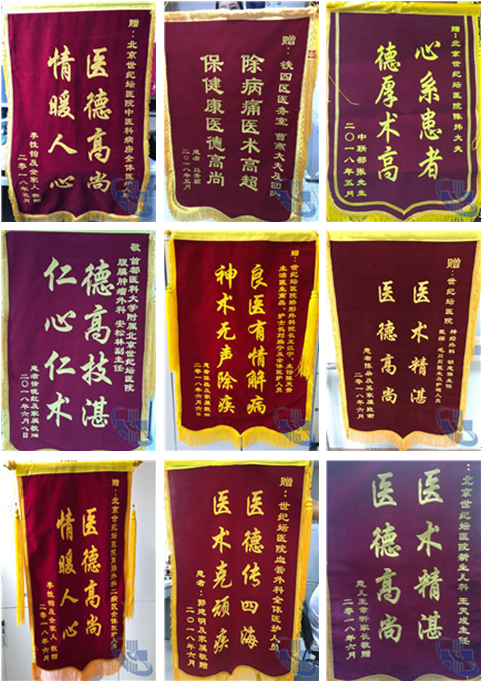 赠：北京世纪坛医院中医科病房全体医护
医德高尚
情暖人心
李性钧及全家人敬赠
二零一八年六月
赠：铁四区医务室
除病痛医术高超
保健康医德高尚
二〇一八年五月
赠：北京世纪坛医院陈炜大夫
心系患者
德厚术高
中联部张先生
二〇一八年五月
敬
首都医科大学附属北京世纪坛医院
腹膜肿瘤外科 安松林副主任
德高技湛
仁心仁术
二〇一八年六月八日
良医有情解病
神术无声除疾
二零一八年六月六日
赠：世纪坛医院
医术精湛
医德高尚
二〇一八年六月
赠：北京世纪坛医院胃肠外科二病区全体医护人员
医德高尚
情暖人心
李性钧及全家人敬赠
二零一八年六月
赠：世纪坛医院血管外科全体医护人员
医德传四海
医术克顽疾
患者：郭晚明及家属敬赠
二〇一八年六月
赠：北京世纪坛医院新生儿科 王天成主任
医术精湛
医德高尚
二〇一八年六月